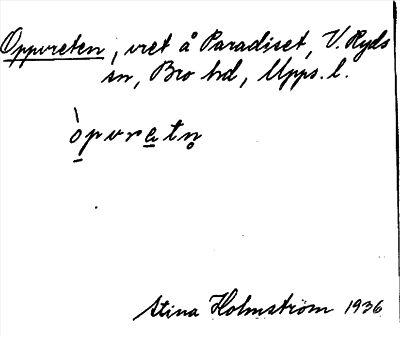 Oppvreten, vret å Paradiset, V. Ryds
sn, Bro hd, Upps. l.
ò̱pvre̱tn̥
Stina Holmström 1936